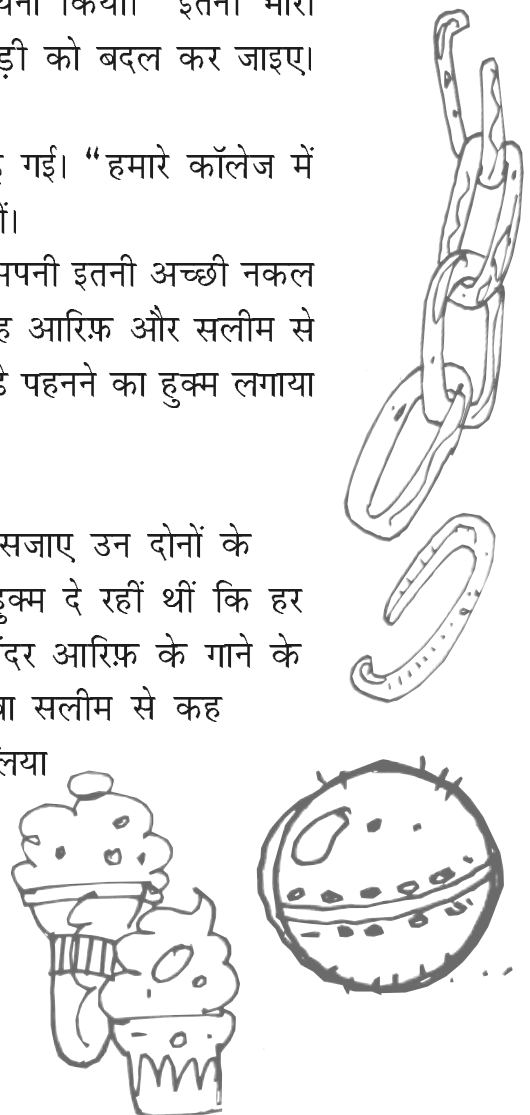 को बदल कर जाइए।
गई। “हमारे कॉलेज में
इतनी अच्छी नकल
आरिफ़ और सलीम से
पहनने का हुक्म लगाया
सजाए उन दोनों के
हुक्म दे रहीं थीं कि हर
आरिफ़ के गाने के
सलीम से कह